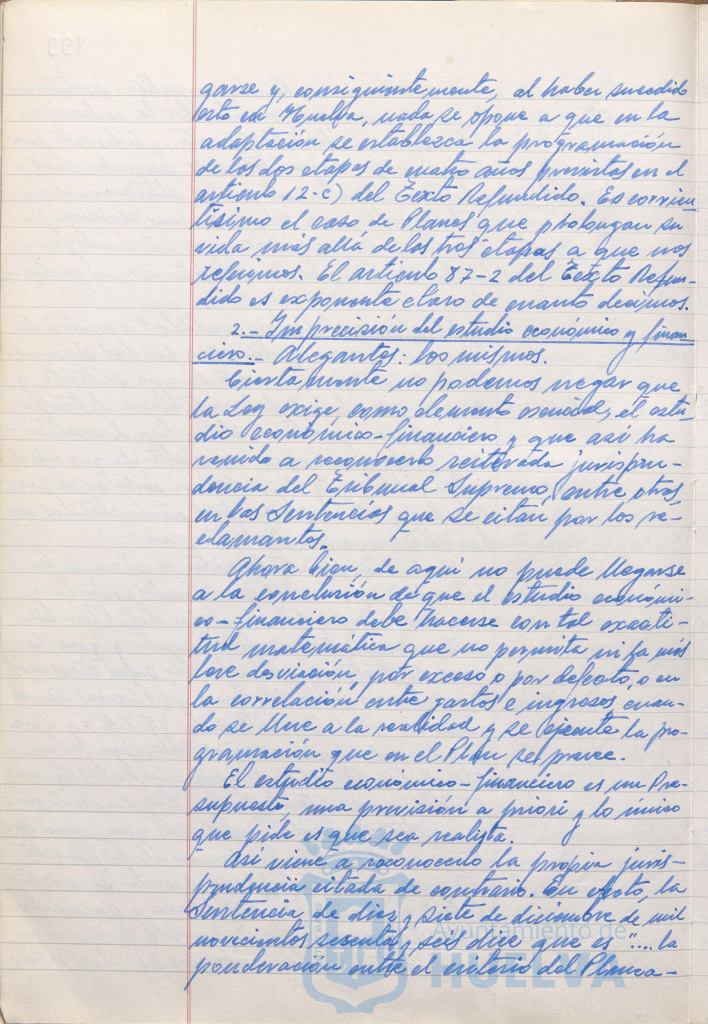 garse y, consiguientemente, al haber sucedido
esto en Huelva, nada se opone a que en la
adaptación se establezca la programación
de los dos etapas de cuatro años previstas en el
articulo 12-c) del Texto Refundido. Es corrien-
tísimo el caso de Planes que prolongan su
vida más allá de los tros etapas a que nos
referimos. El articulo 87-2 del Texto Refun-
dido es exponente claro de cuanto decimos.
2.- Imprecisión del estudio económico y finan-
ciero.- Alegantes: los mismos.
Ciertamente no podemos negar que
la Ley exige, como elemento esencial, el estu-
dio económico-financiero y que así ha
venido a reconocerlo reiterada jurispru-
dencia del Tribunal Supremo, entre otras
en las Sentencias que se citan por los re-
clamantes.
Ahora bien, de aquí no puede llegarse
a la conclusión de que el estudio económi-
co-financiero debe hacerse con tal exacti-
tud matemática que no permita ni la más
leve desviación, por exceso o por defecto, o en
la correlación entre gastos e ingresos, cuan-
do se lleve a la realidad y se ejecute la pro-
gramación que en el Plan se prevee.
El estudio económico-financiero es un Pre-
supuesto, una previsión a priori y lo único
que pide es que sea realista.
Así viene a reconocerlo la propia juris-
prudencia citada de contrario. En efecto, la
Sentencia de diez y siete de diciembre de mil
novecientos sesenta y seis dice que es "....la
ponderación entre el criterio del Planea-
Ayuntamiento de
HUELVA
193